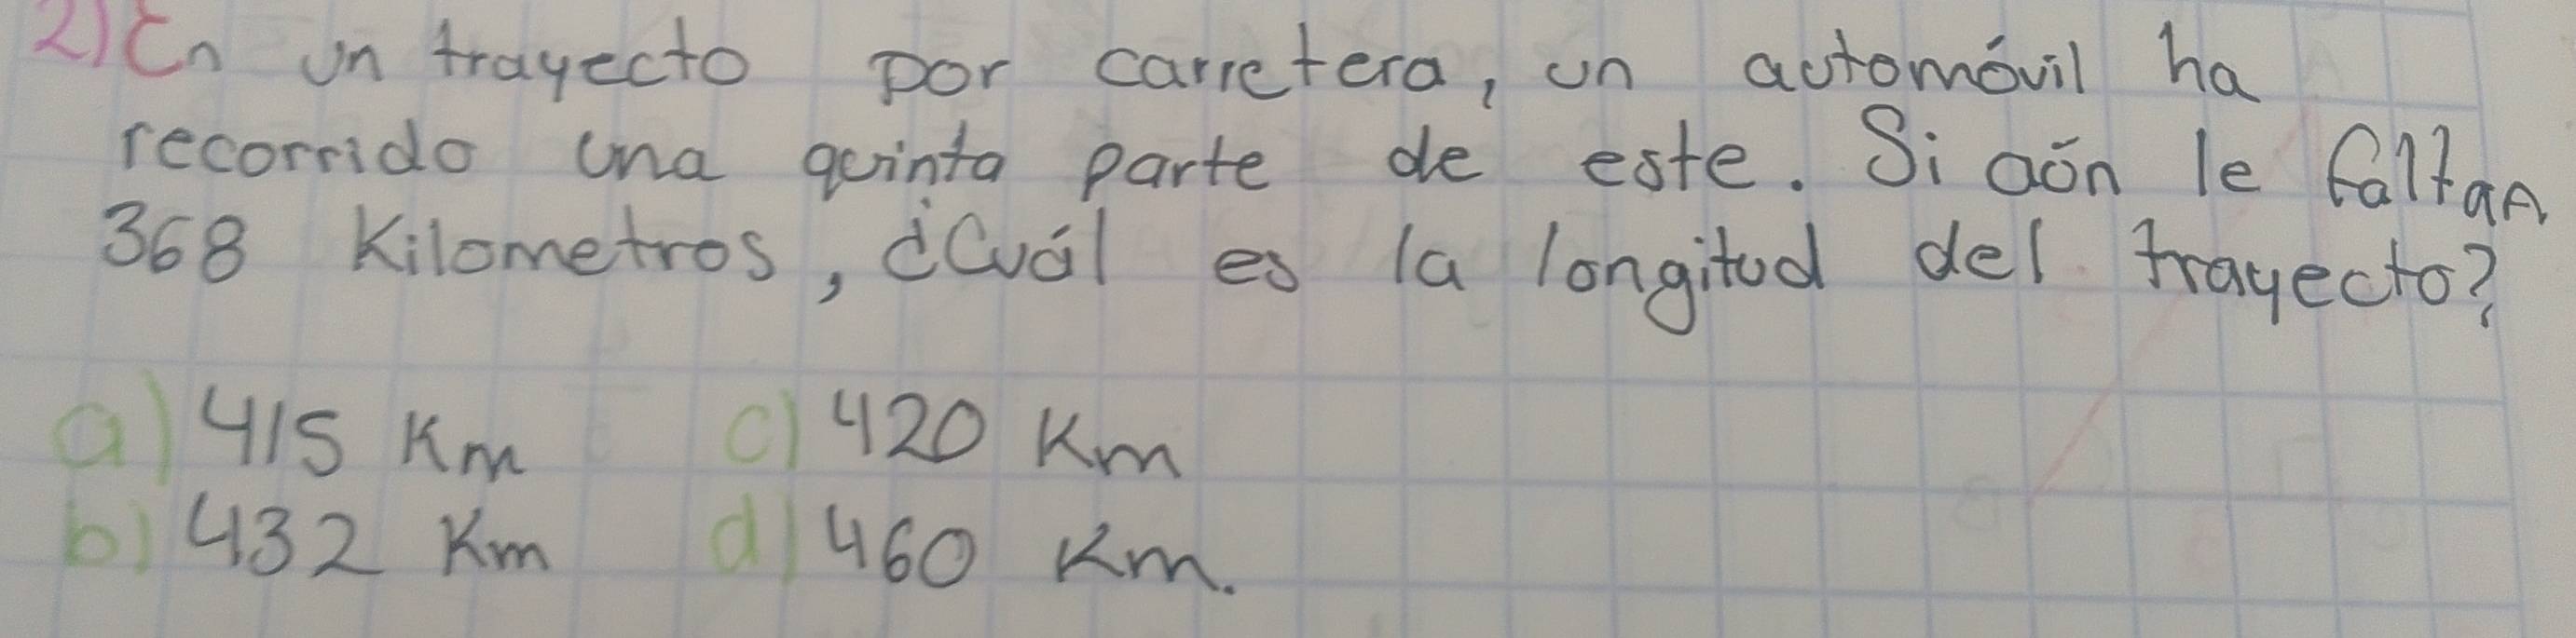 2) En un trayecto por carretera, un automóvil ha
recorrido una quinta parte de este. Si aún le faltan
368 Kilometros, ¿Cuál es la longitud del trayecto?
a) 415 Km c) 420 Km
b) 432 Km d) 460 Km.